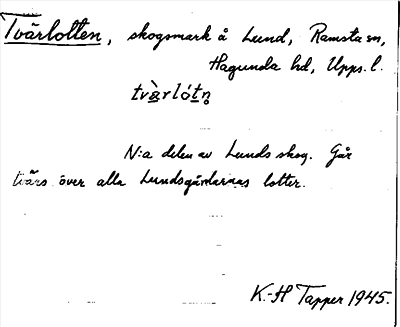 Tvärlotten, skogsmark å Lund, Ramsta sn,
Hagunda hd, Upps. l.
tvὰrlótn̥
N:a delen av Lunds skog. Går
tvärs över alla Lundsgårdarnas lotter.
K.-H Tapper 1945.